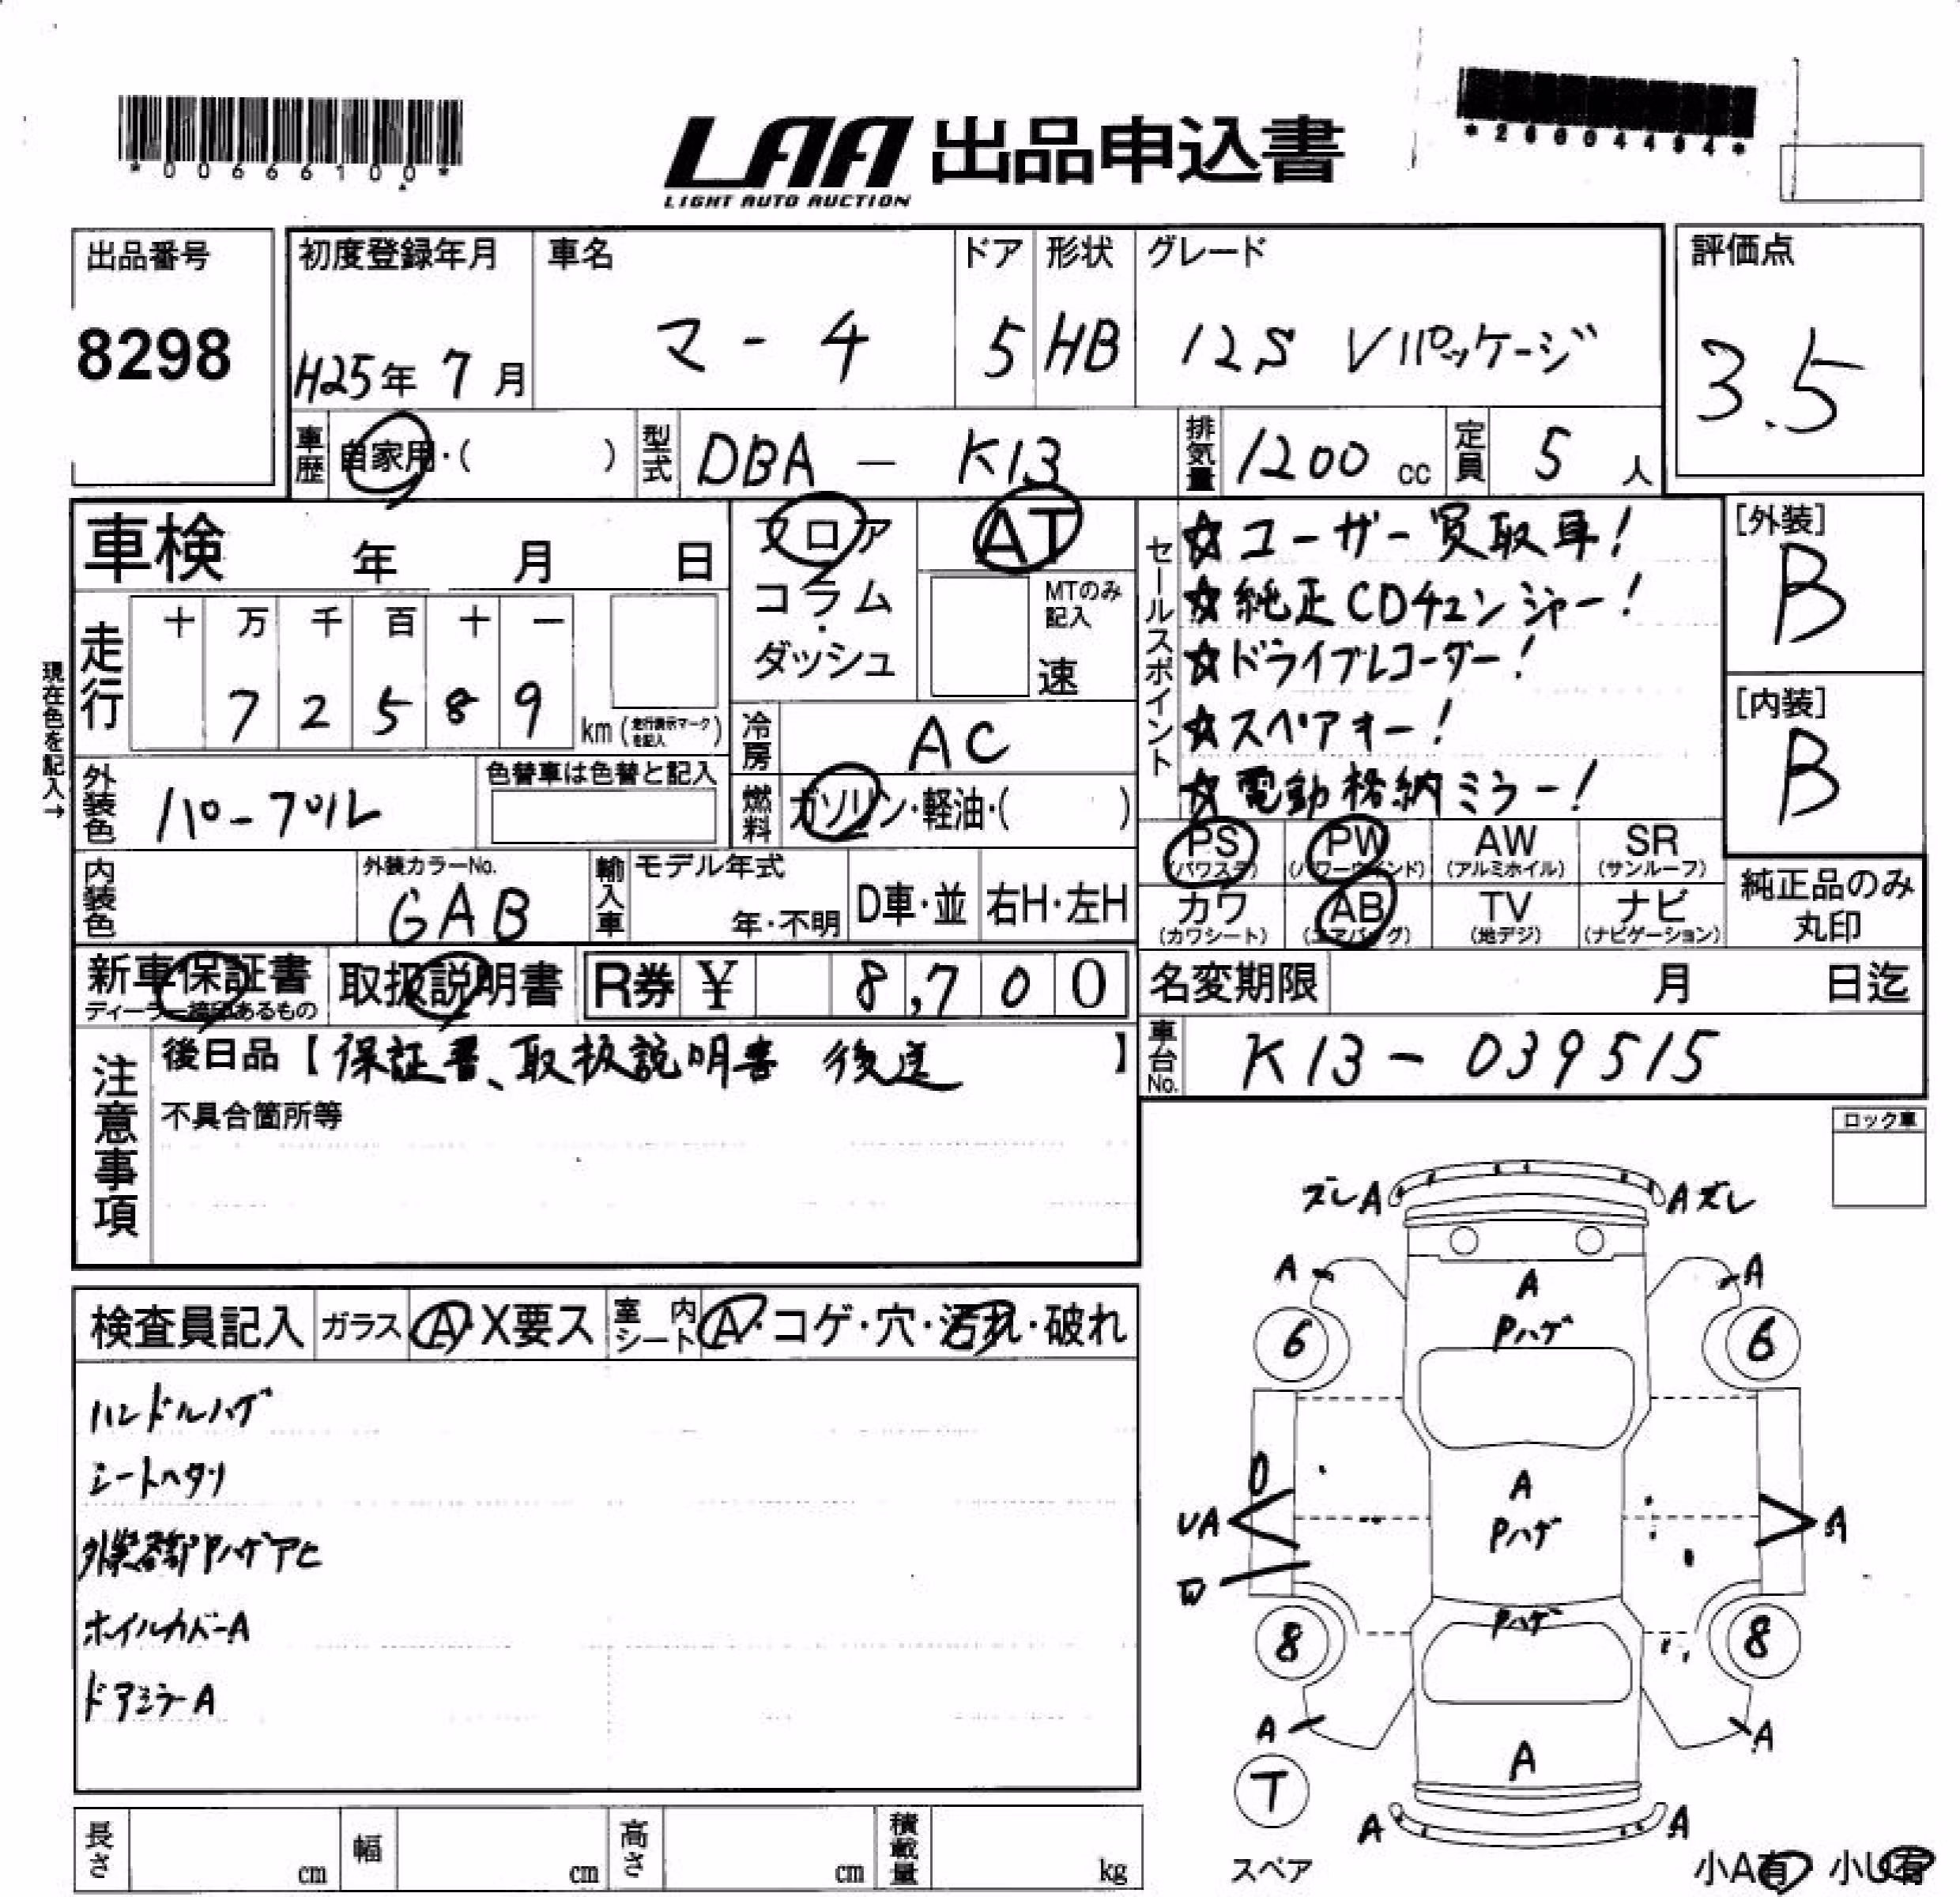 *00666100*
LAA 出品申込書
LIGHT AUTO AUCTION
*26004494*
出品番号
8298
初度登録年月
H25年 7月
車名
マーチ
ドア
5
形状
HB
グレード
12S Vパッケージ
評価点
3.5
車歴 自家用・( )
型式 DBA - K13
排気量 1200 cc
定員 5 人
車検 年 月 日
走行
十 万 千 百 十 一
7 2 5 8 9
km (走行表示マークを記入)
現在色を記入→
フロア
コラム
・
ダッシュ
AT
MTのみ記入
速
冷房 AC
燃料 ガソリン・軽油・( )
外装色 パープル
色替車は色替と記入
内装色
外装カラーNo.
GAB
輸入車
モデル年式
年・不明
D車・並
右H・左H
セールスポイント
☆ユーザー買取車!
☆純正CDチェンジャー!
☆ドライブレコーダー!
☆スペアキー!
☆電動格納ミラー!
[外装]
B
[内装]
B
PS (パワステ)
PW (パワーウィンド)
AW (アルミホイル)
SR (サンルーフ)
カワ (カワシート)
AB (エアバッグ)
TV (地デジ)
ナビ (ナビゲーション)
純正品のみ
丸印
新車保証書
ディーラー捺印あるもの
取扱説明書
R券 ¥ 8,700
名変期限 月 日迄
車台No. K13-039515
注意事項
後日品【保証書、取扱説明書 後送】
不具合箇所等
ロック車
検査員記入
ガラス A・X要ス
室内シート A・コゲ・穴・汚れ・破れ
ハンドルハゲ
シートヘタリ
外装各部Pハゲアセ
ホイルカバーA
ドアミラーA
ズレA
Aズレ
A
A
A
Pハゲ
6
6
A
Pハゲ
UA
A
Pハゲ
8
8
A
A
A
T
スペア
A
A
小A有 小U有
長さ cm
幅 cm
高さ cm
積載量 kg